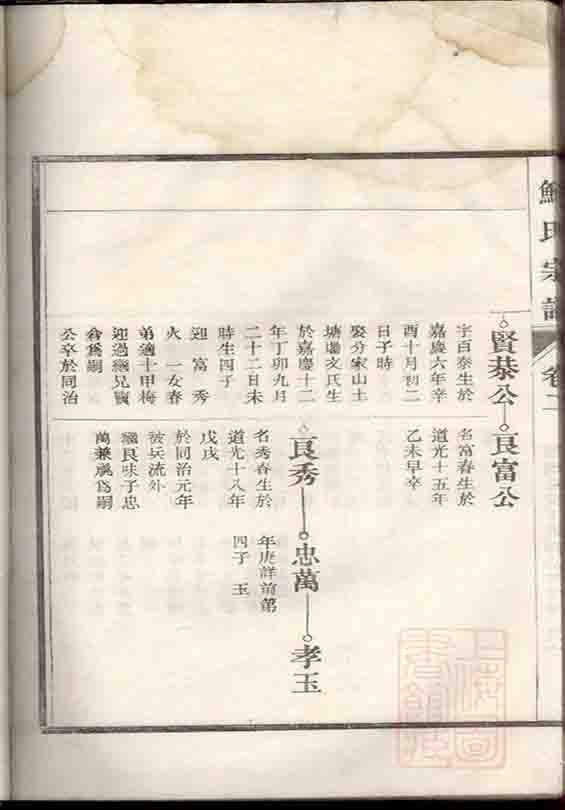 氏宗譜
卷二
賢恭公
良富公
字百泰生於
嘉慶六年辛
酉十月初二
日子時
娶分家山土
塘文氏生
於嘉慶十二
年丁卯九月
二十二日未
時生四子
迎 富 秀
火 一女春
弟適十甲梅
迎過繼兄寶
為嗣
公卒於同治
名富春生於
道光十五年
乙未早卒
良秀
忠萬
孝玉
名秀春生於
道光十八年
戊戌
於同治元年
被兵流外
繼良味子忠
萬兼祧爲嗣
年庚詳前第
四子 玉
上海圖書館藏